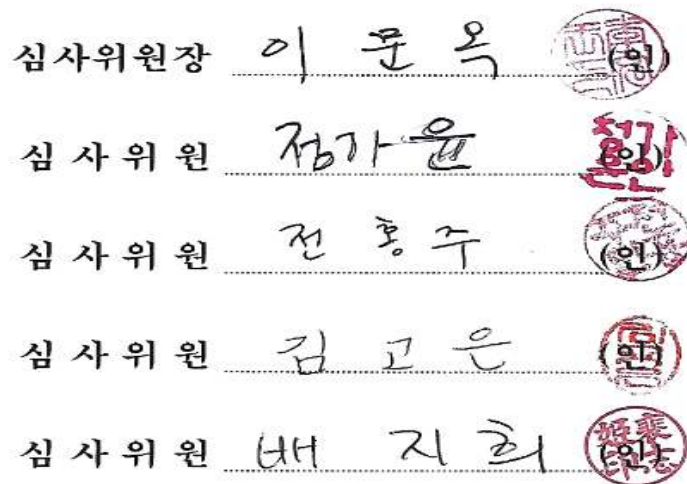 심사위원장 이 문 옥 (인)
심 사 위 원 정가윤 (인)
심 사 위 원 전 홍 주 (인)
심 사 위 원 김 고 은 (인)
심 사 위 원 배 지 희 (인)